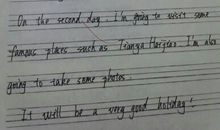 On the second day, I'm going to visit some
famous places such as Tianya Haijiao. I'm also
going to take some photos.
It will be a very good holiday!